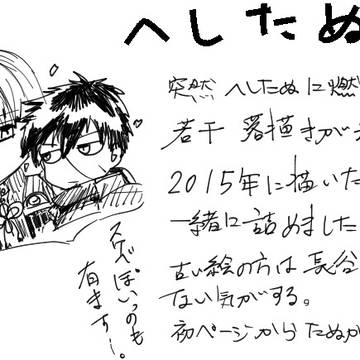 へしたぬ
突然 へしたぬ に燃
若干 落描きが
2015年に描いた
一緒に詰めました
古い絵の方は長谷
ない気がする。
初ページから たぬが
スケベっぽいのも
有ます〜。